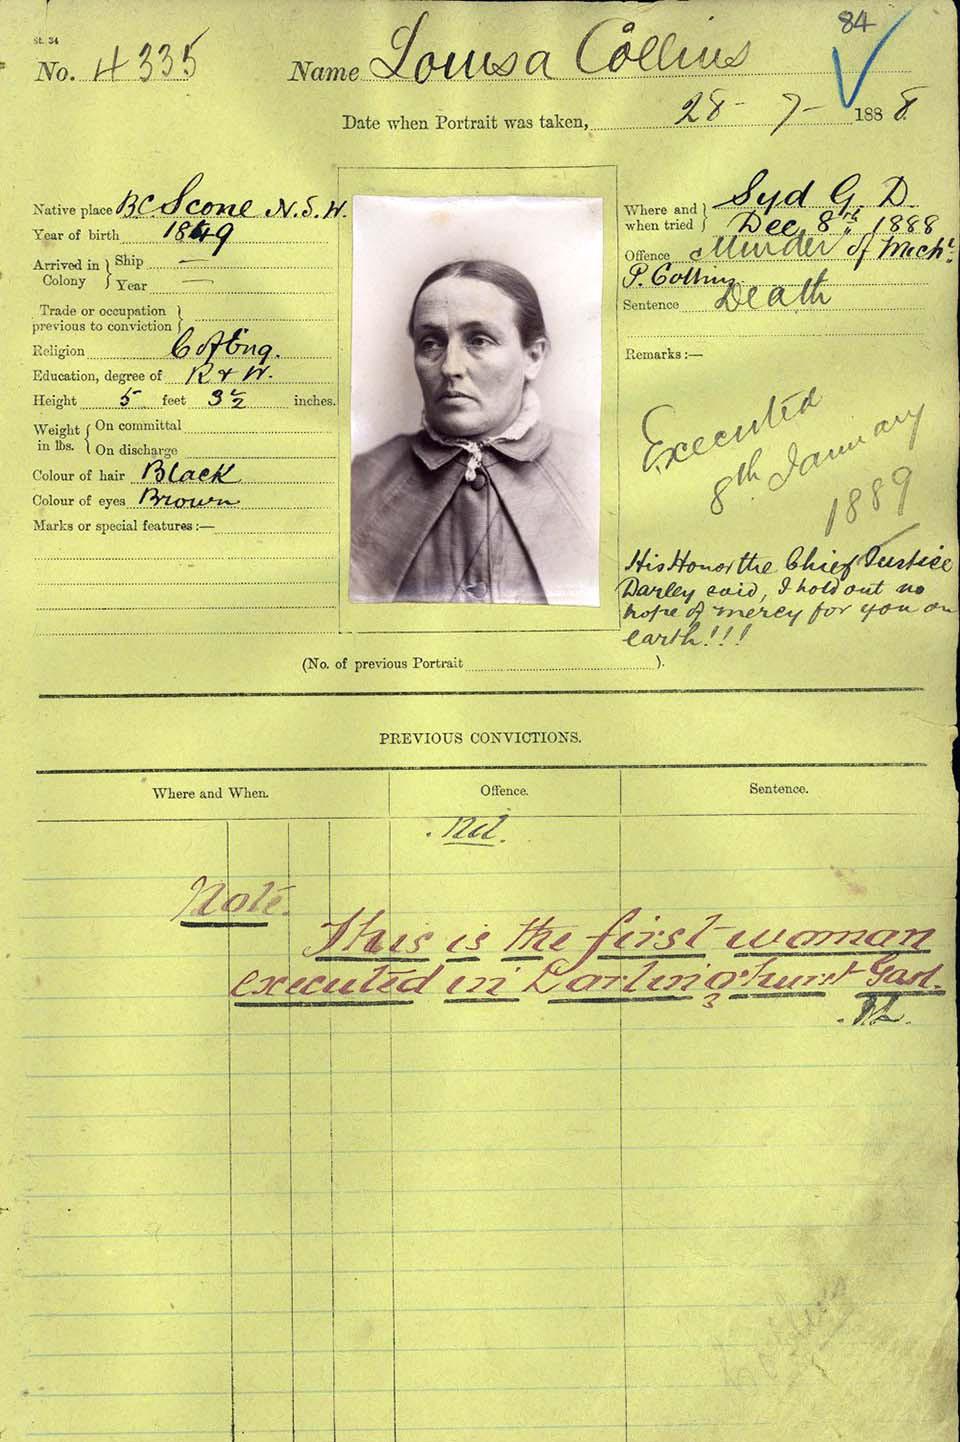 St. 34
84
No. 4335 Name Louisa Collins
Date when Portrait was taken, 28-7-1888
Native place BC. Scone N.S.W.
Year of birth 1849
Arrived in Colony } Ship —
Year —
Trade or occupation previous to conviction }
Religion C of Eng.
Education, degree of R & W.
Height 5 feet 3½ inches.
Weight in lbs. { On committal
On discharge
Colour of hair Black
Colour of eyes Brown
Marks or special features:—
Where and when tried } Syd G. D.
Dec. 8th 1888
Offence Murder of Michl.
P. Collins
Sentence Death
Remarks:—
Executed
8th January
1889
His Honor the Chief Justice
Darley said, I hold out no
hope of mercy for you on
earth!!!
(No. of previous Portrait ).
PREVIOUS CONVICTIONS.
Where and When. Offence. Sentence.
Nil.
Note.
This is the first woman
executed in Darlinghurst Gaol.